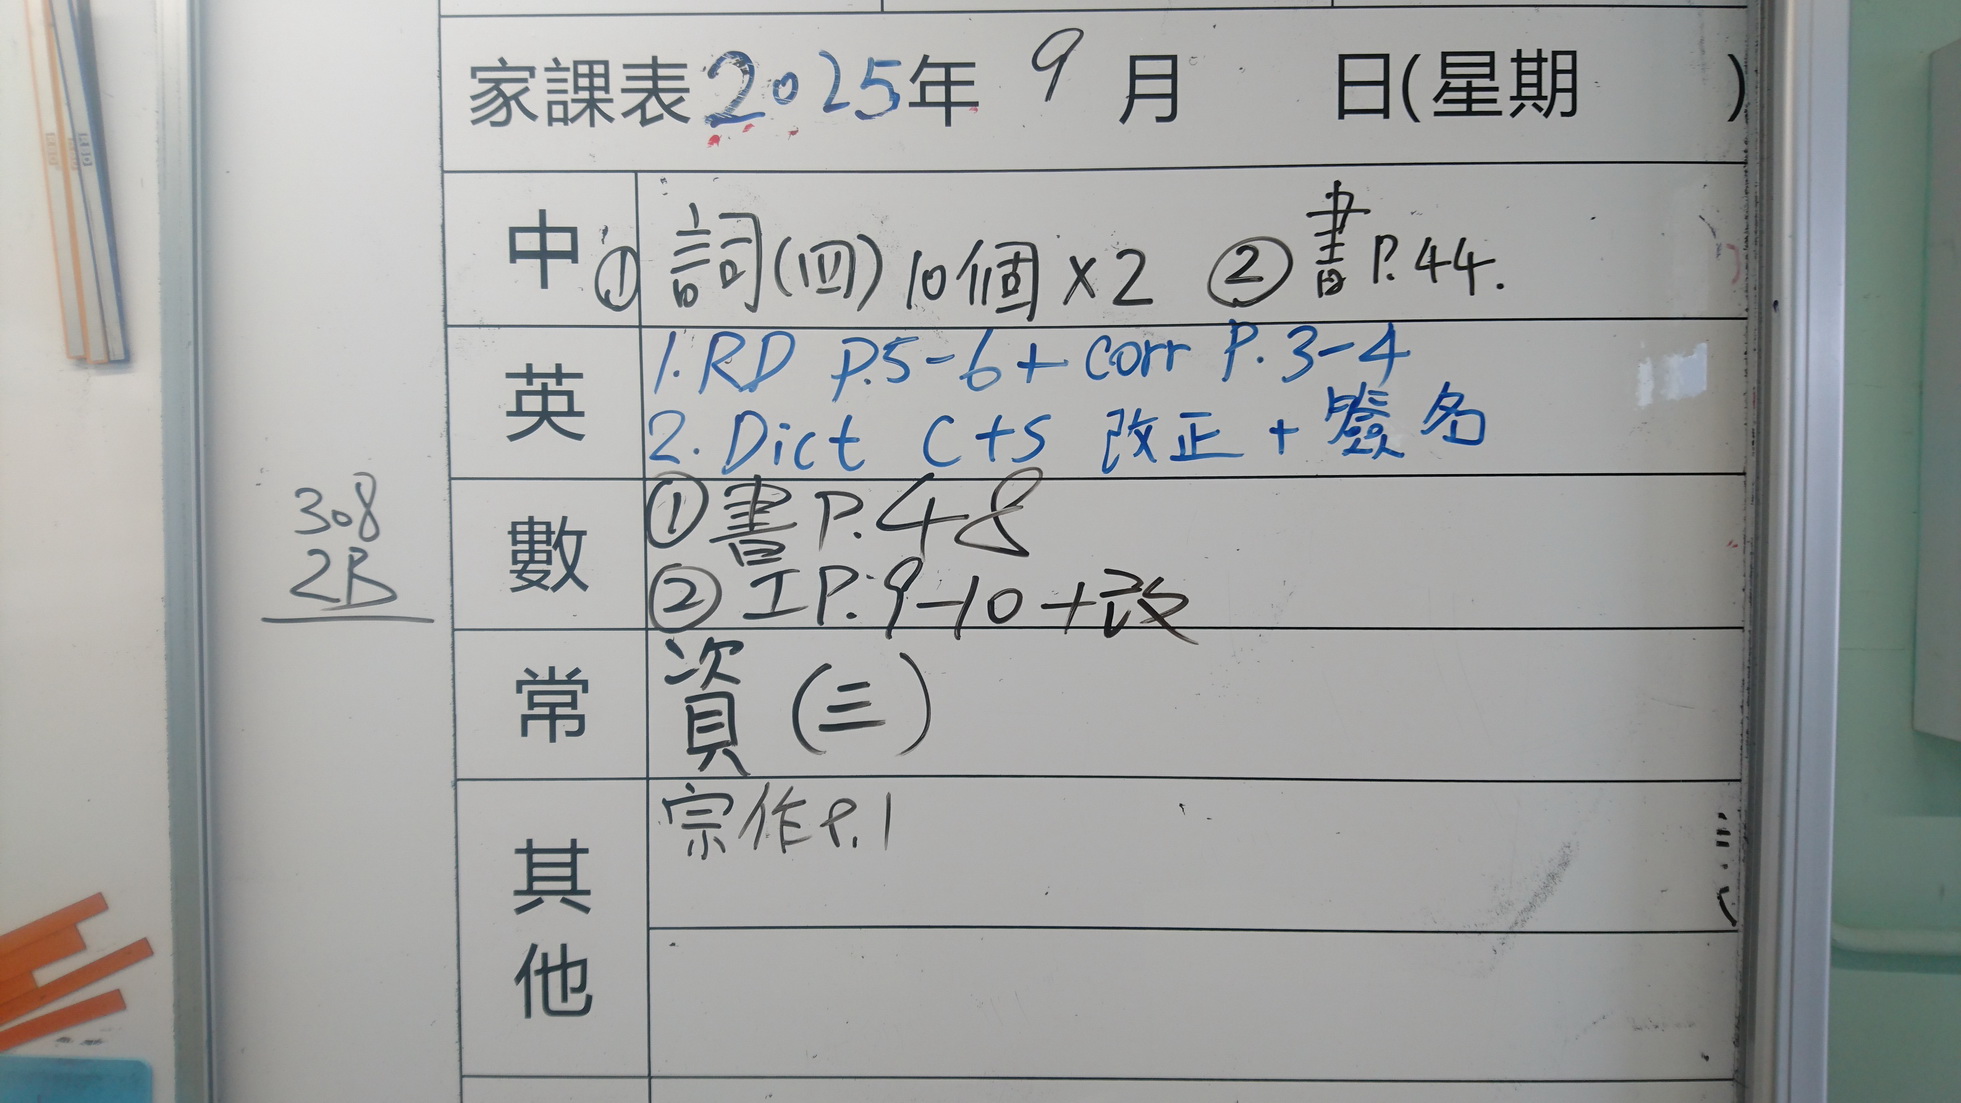 家課表2025年 9 月 日(星期 )
中 ① 詞(四)10個×2 ② 書P.44.
英 1.RD P.5-6+corr P.3-4
2. Dict C+S 改正+簽名
308
2B
數 ①書P.48
②工P.9-10+改
常 資(三)
其他 宗作P.1